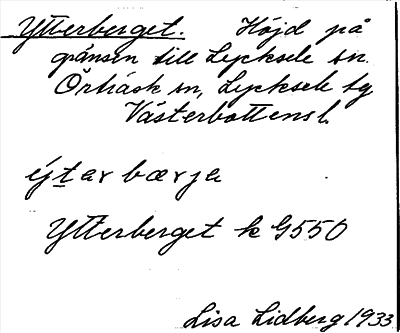 Ytterberget. Höjd på
gränsen till Lycksele sn.
Örträsk sn, Lycksele tg
Västerbottens l.
ýtar bærja
Ytterberget k G550
Lisa Lidberg 1933